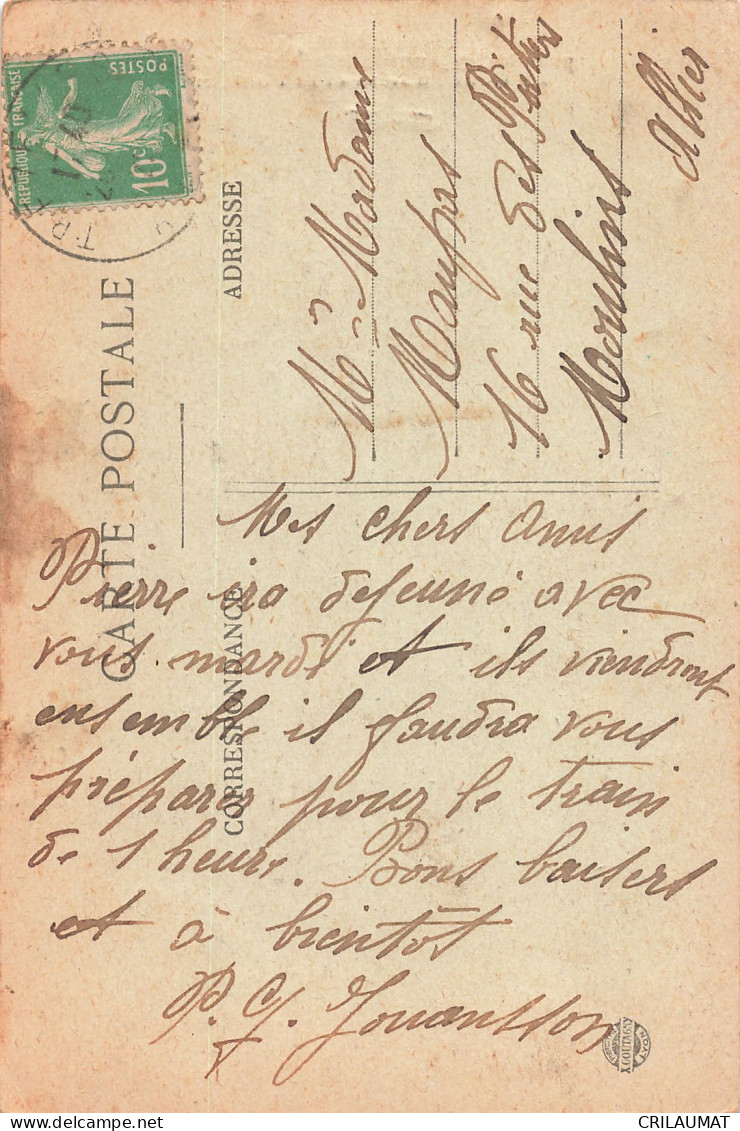 REPUBLIQUE FRANÇAISE
POSTES
10c
CARTE POSTALE
ADRESSE
CORRESPONDANCE
Mr Madame
16 rue des
Moulins
Allier
Mes chers amis
Pierre ira dejeuné avec
vous mardi et ils viendront
ensemble il faudra vous
préparer pour le train
de 1 heure. Bons baisers
et à bientôt
P. G. Jouansson
X. GOUTAGNY
LYON
CRILAUMAT